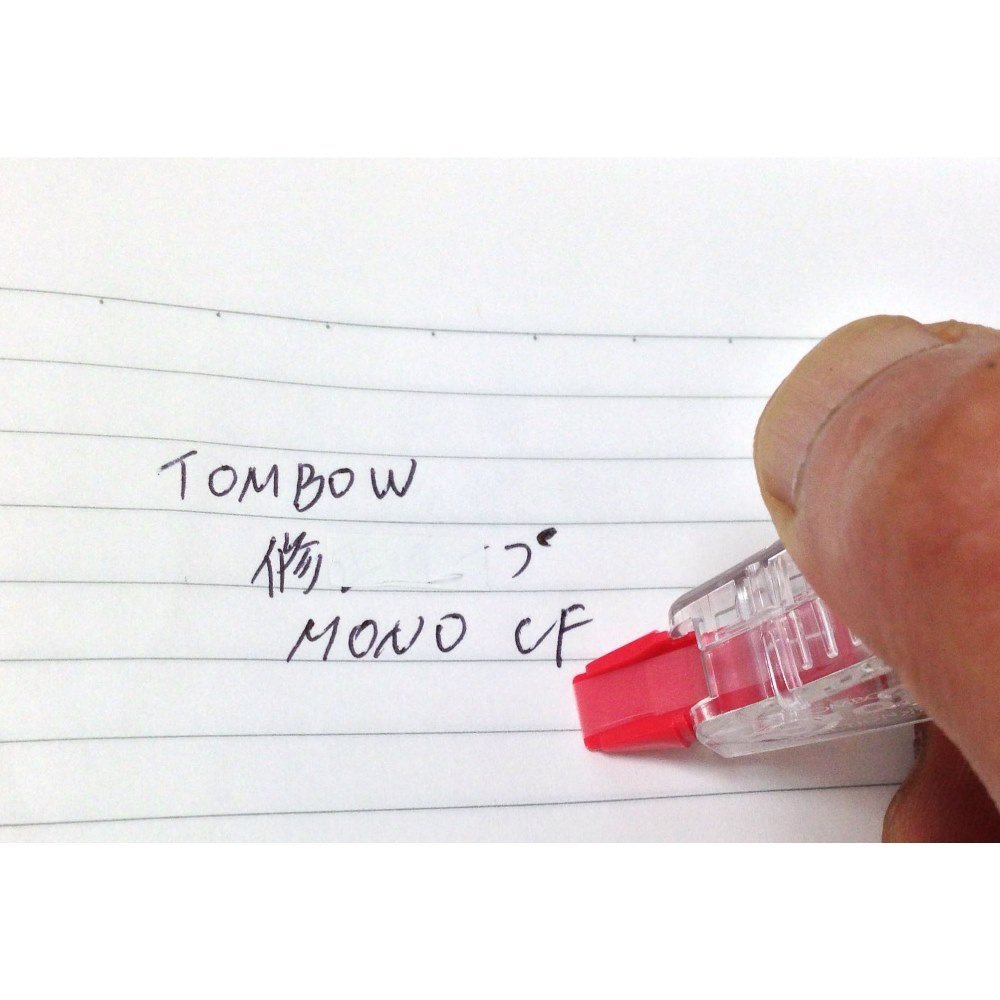 TOMBOW
修 プ
MONO CF